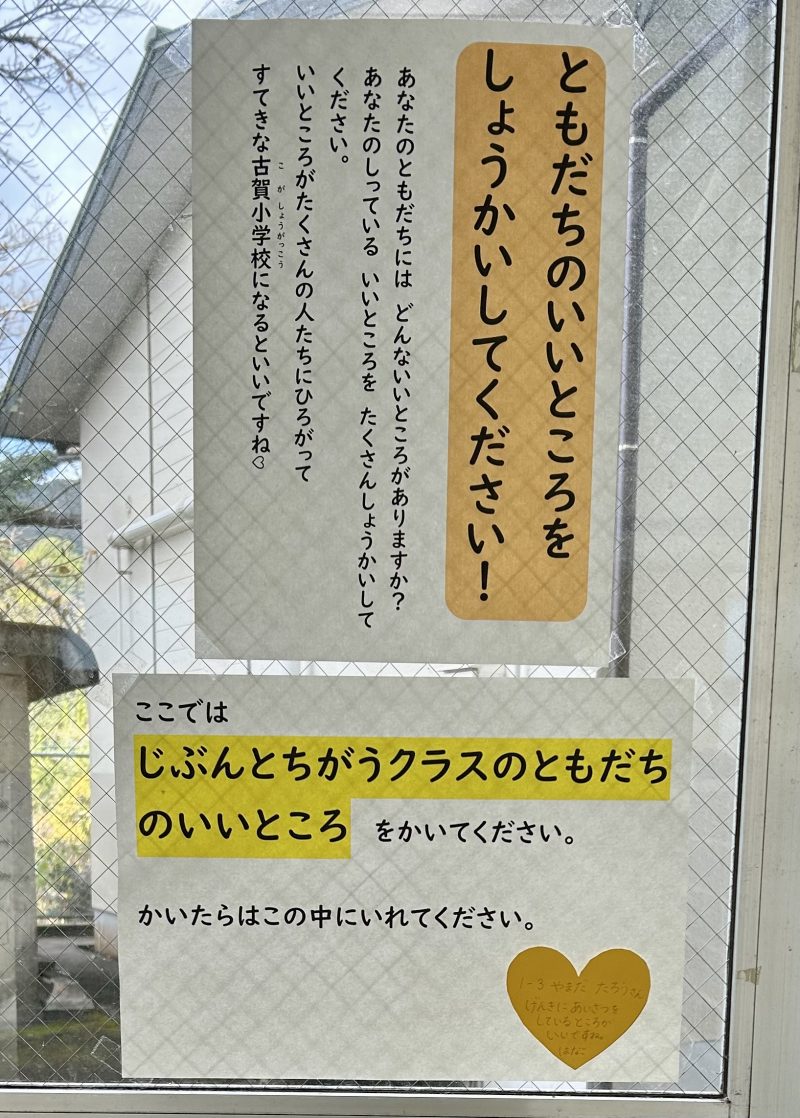 ともだちのいいところを
しょうかいしてください！
あなたのともだちには どんないいところがありますか？
あなたのしっている いいところを たくさんしょうかいして
ください。
いいところがたくさんの人たちにひろがって
すてきな古賀小学校になるといいですね♡
こ が しょうがっこう
ここでは
じぶんとちがうクラスのともだち
のいいところ をかいてください。
かいたらはこの中にいれてください。
1-3 やまだ たろうさん
げんきに あいさつを
しているところが
いいですね。
はなこ